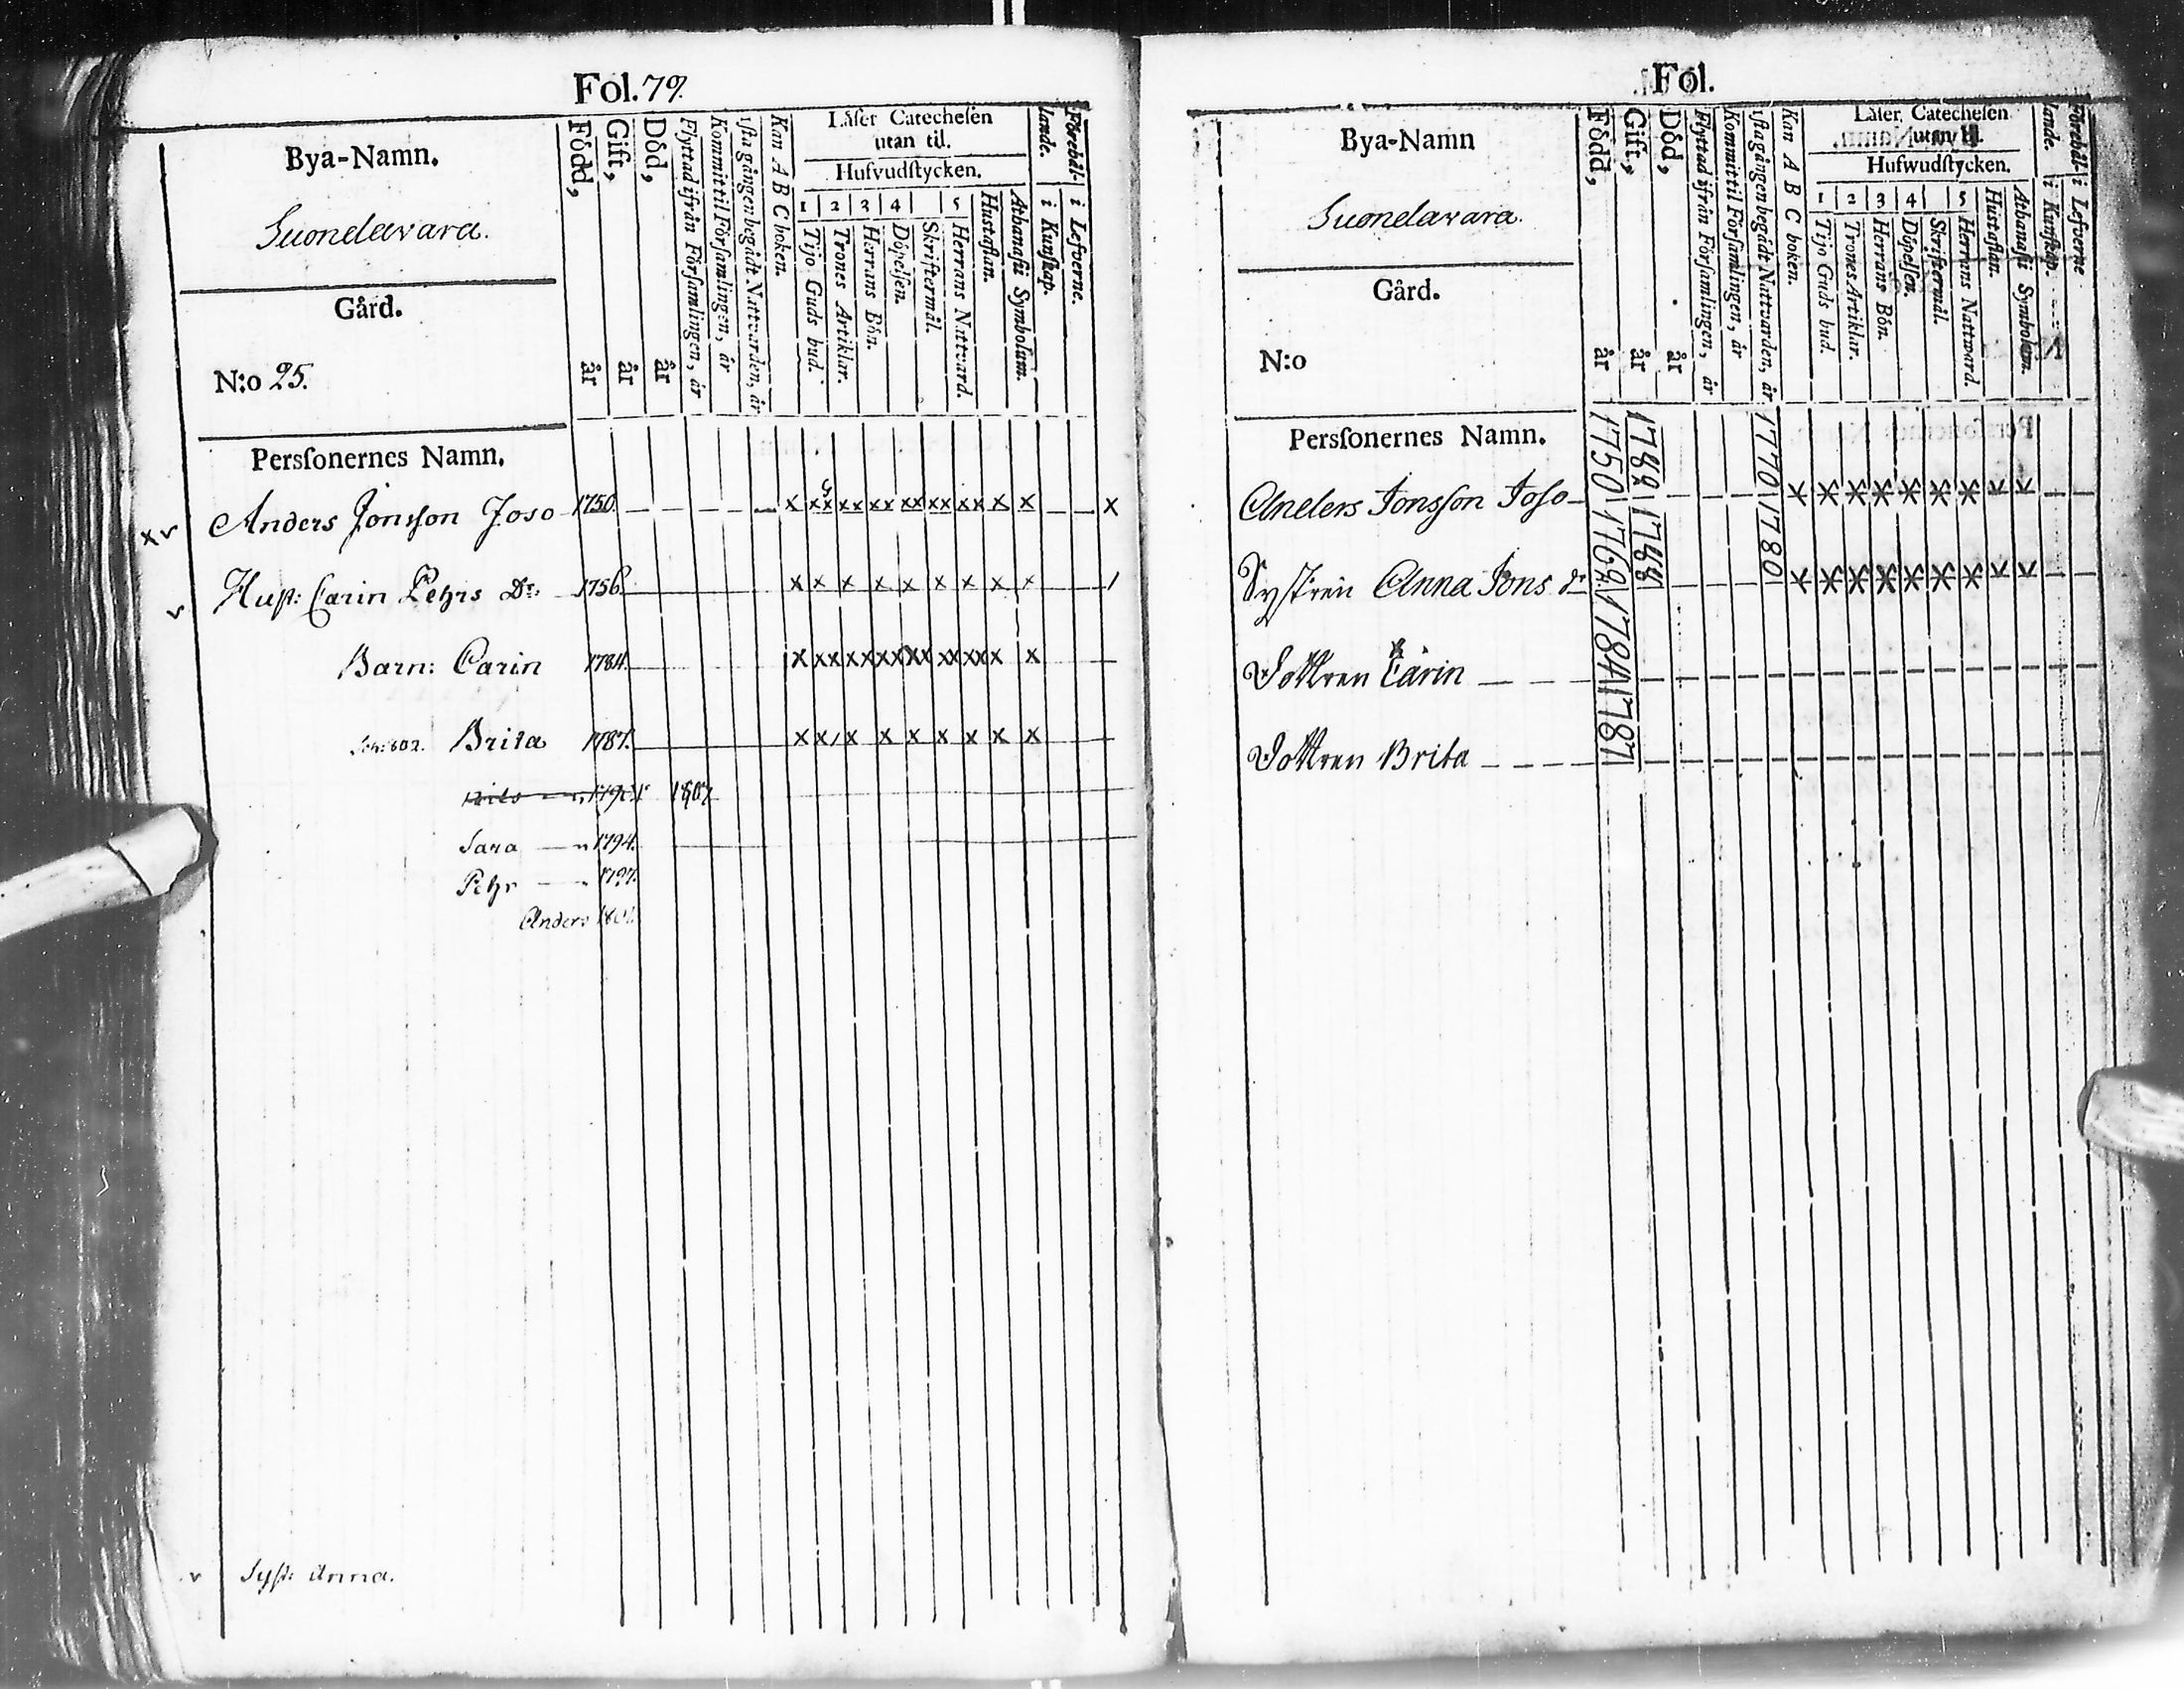 Fol. 79.
Bya-Namn.
Suondavara.
Gård.
N:o 25.
Perſonernes Namn.
Född, år
Gift, år
Död, år
Flyttad ifrån Förſamlingen, år
Kommit til Förſamlingen, år
1ſta gången begådt Nattvarden, år
Kan A B C boken.
Läſer Catecheſen
utan til.
Hufvudſtycken.
1 2 3 4 5
Tijo Guds bud.
Trones Artiklar.
Herrans Bön.
Döpelſen.
Skriftermål.
Herrans Nattvard.
Hustaflan.
Athanaſii Symbolum.
Förehål-
lande.
i Kunſkap.
i Lefverne.
x v Anders Jonsſon Joso 1750. x xx xx xx xx xx xx x x x
v Huſt: Carin Pehrs Dr. 1756 x x x x x x x x x
Barn: Carin 1784. x xx xx xx xx xx xx x x
Brita 1787. x x x x x x x x x
Nils 1807
Sara 1794.
Pehr 1797.
Anders 1801.
v Syſt: Anna.
Fol.
Bya-Namn
Suondavara.
Gård.
N:o
Perſonernes Namn.
Född, år
Gift, år
Död, år
Flyttad ifrån Förſamlingen, år
Kommit til Förſamlingen, år
1ſta gången begådt Nattvarden, år
Kan A B C boken.
Läſer Catecheſen
utan til.
Hufwudſtycken.
1 2 3 4 5
Tijo Guds bud.
Trones Artiklar.
Herrans Bön.
Döpelſen.
Skriftermål.
Herrans Nattward.
Hustaflan.
Athanaſii Symbolum.
Förehål-
lande.
i Kunſkap.
i Lefverne
Anders Jonsſon Joſo 1750 1770
Syſtren Anna Jons dr 1762 1788 1780
Dottren Carin 1784
Dottren Brita 1787